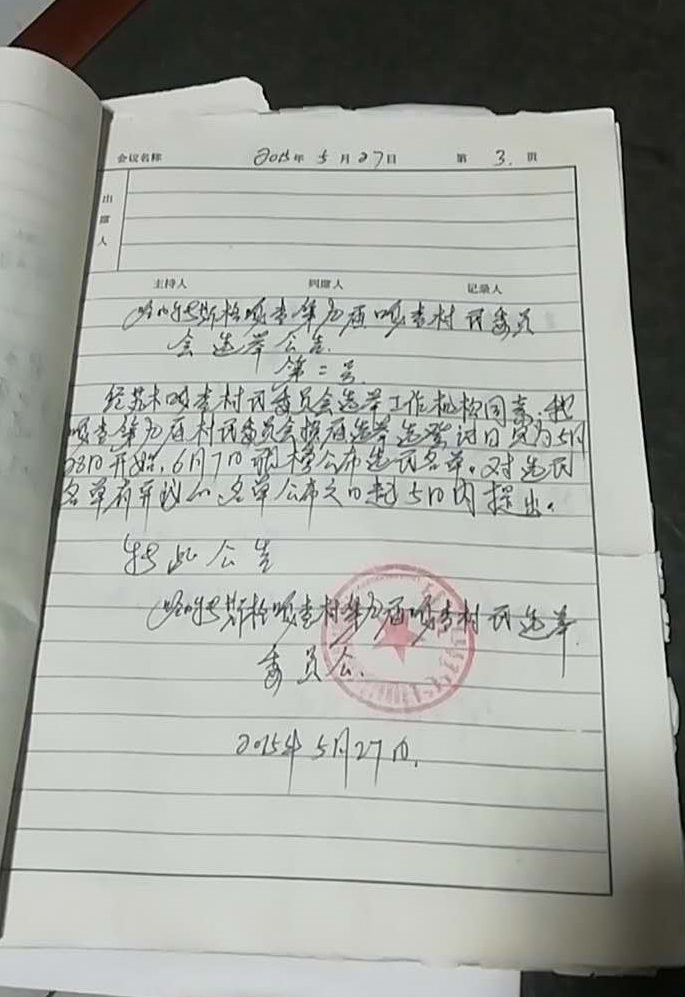 会议名称 2015年 5月27日 第 3. 页
出席人
主持人 列席人 记录人
哈日_斯格嘎查第九届嘎查村民委员
会选举公告.
第二号.
经苏木嘎查村民委员会选举工作机构同意,我
嘎查第九届村民委员会换届选举选登记日定为5月
28日开始,6月7日张榜公布选民名单。对选民
名单有异议的、名单公布之日起5日内提出。
特此公告
斯格嘎查村第九届嘎查村民选举
委员会.
2015年5月27日.